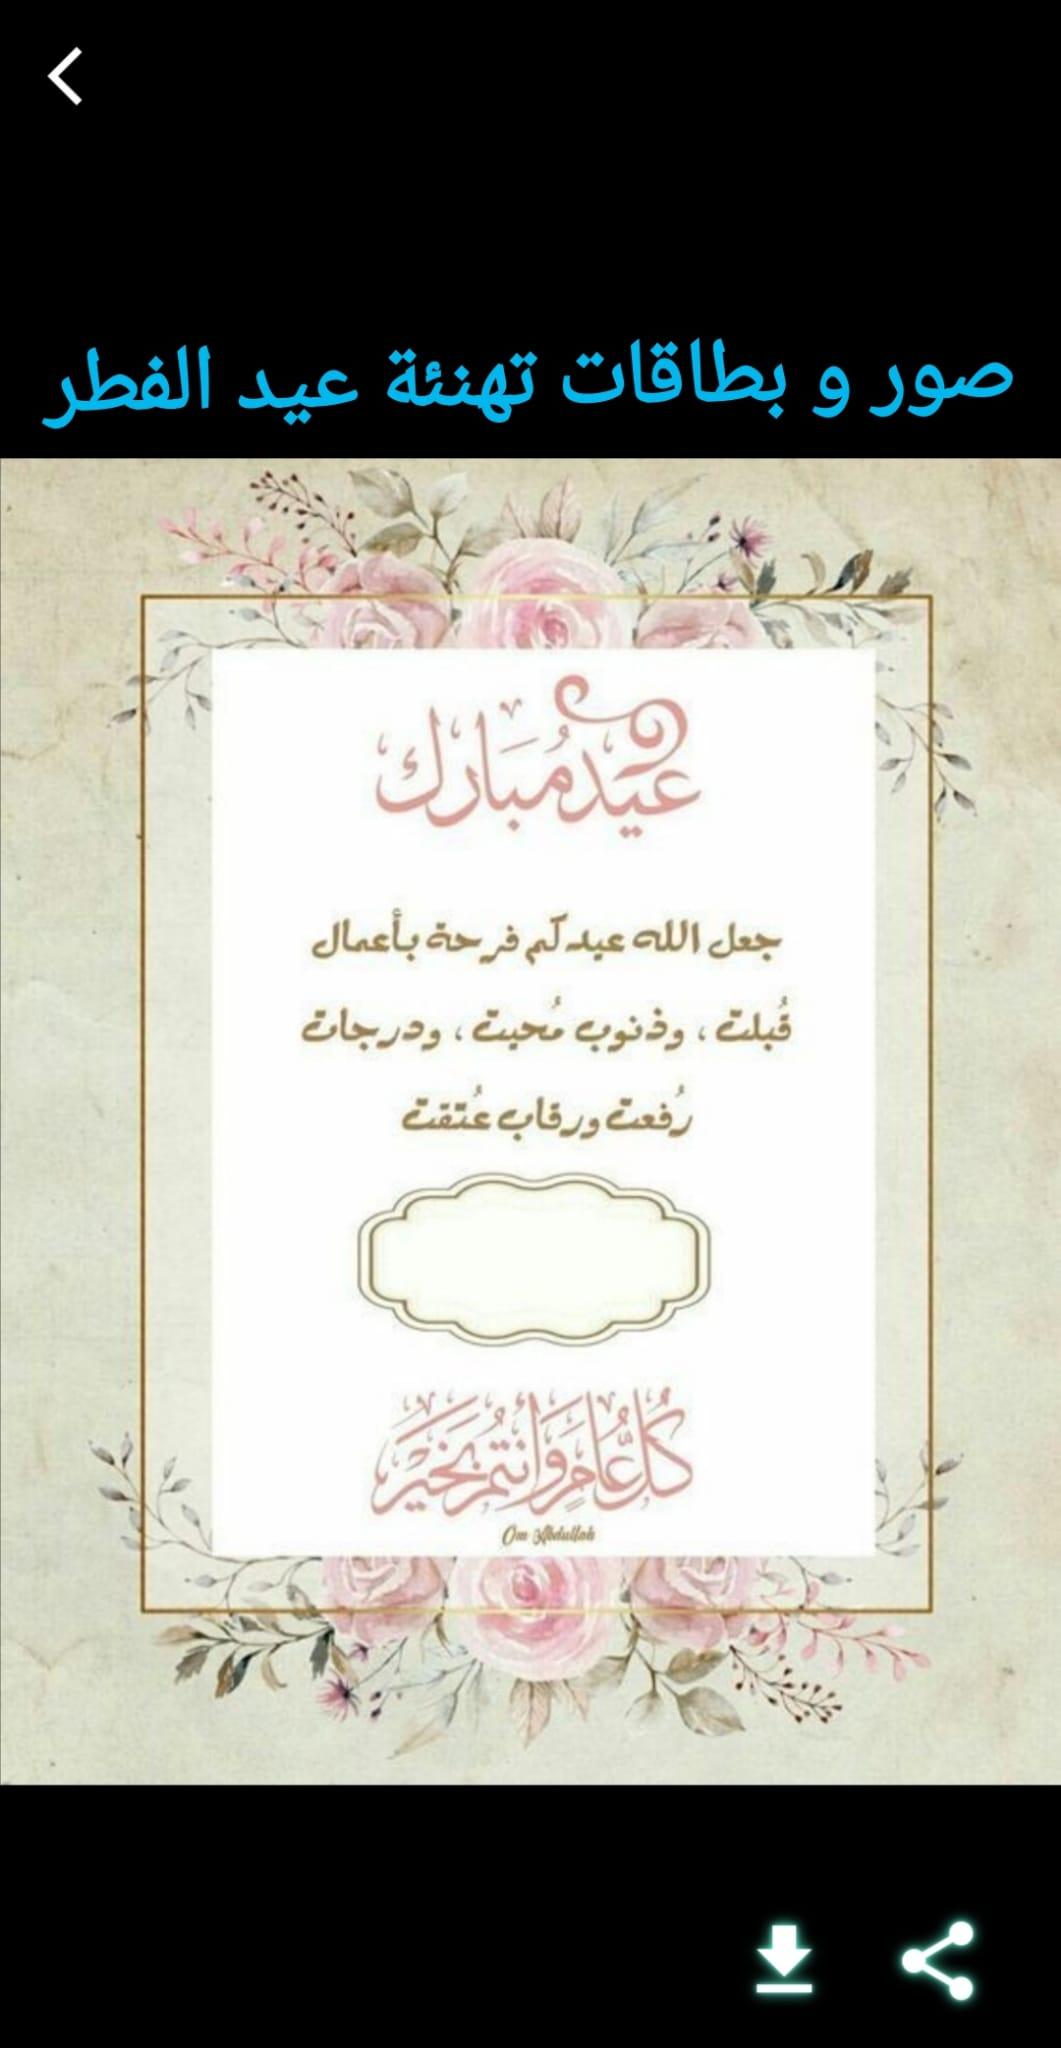 صور و بطاقات تهنئة عيد الفطر
عيد مُبارك
جعل الله عيدكم فرحة بأعمال
قُبلت ، وذنوب مُحيت ، ودرجات
رُفعت ورقاب عُتقت
كُلُّ عَامٍ وَأَنتُم بَخَير
Om Abdullah